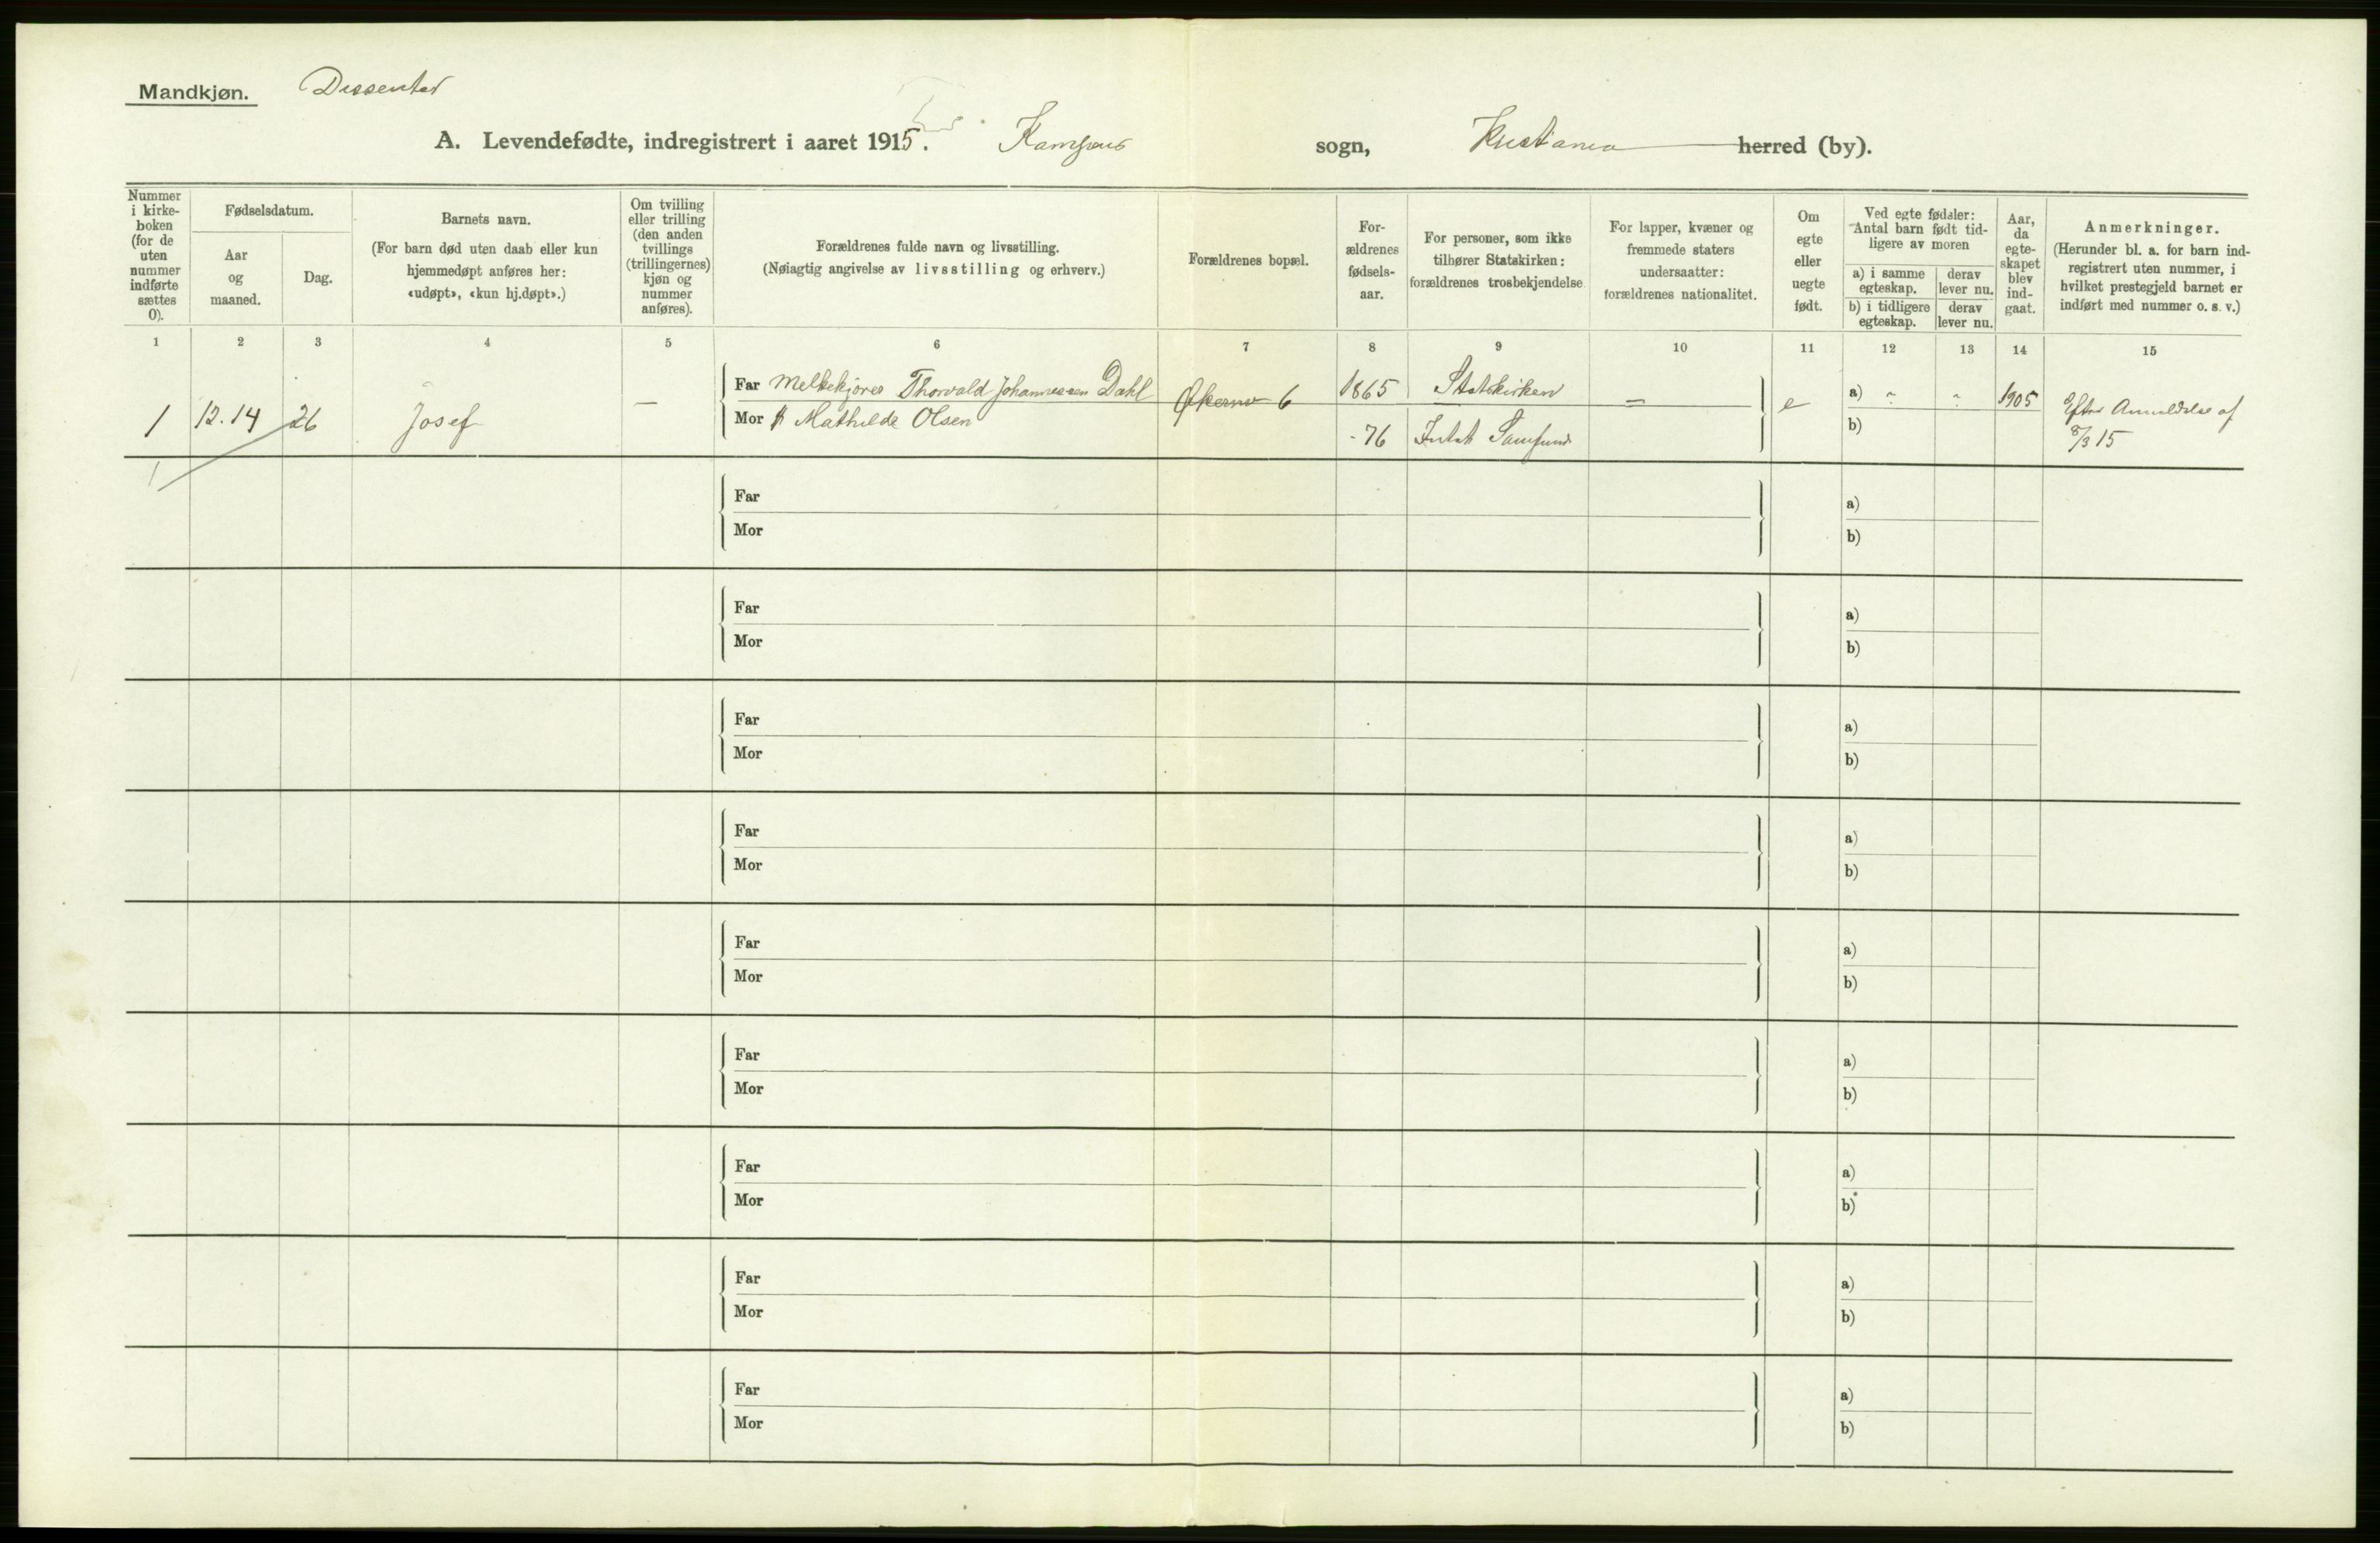 Mandkjøn. Dissenter
A. Levendefødte, indregistrert i aaret 1915. Kampens sogn, Kristiania herred (by).
Nummer i kirke-boken (for de uten nummer indførte sættes 0).
Fødselsdatum.
Aar og maaned.
Dag.
Barnets navn.
(For barn død uten daab eller kun hjemmedøpt anføres her: «udøpt», «kun hj.døpt».)
Om tvilling eller trilling (den anden tvillings (trillingernes) kjøn og nummer anføres).
Forældrenes fulde navn og livsstilling.
(Nøiagtig angivelse av livsstilling og erhverv.)
Forældrenes bopæl.
For-ældrenes fødsels-aar.
For personer, som ikke tilhører Statskirken: forældrenes trosbekjendelse
For lapper, kvæner og fremmede staters undersaatter: forældrenes nationalitet.
Om egte eller uegte født.
Ved egte fødsler: Antal barn født tid-ligere av moren
a) i samme egteskap.
derav lever nu.
b) i tidligere egteskap.
derav lever nu.
Aar, da egte-skapet blev ind-gaat.
Anmerkninger.
(Herunder bl. a. for barn ind-registrert uten nummer, i hvilket prestegjeld barnet er indført med nummer o. s. v.)
1 2 3 4 5 6 7 8 9 10 11 12 13 14 15
Far Melkekjører Thorvald Johannessen Dahl 1865 Statskirken a) " " 1905
1 12.14 26 Josef — Mor Mathilde Olsen Økernv 6 - 76 Samfund — e b) Efter Anmeldelse af
8/3 15
1
Far a)
Mor b)
Far a)
Mor b)
Far a)
Mor b)
Far a)
Mor b)
Far a)
Mor b)
Far a)
Mor b)
Far a)
Mor b)
Far a)
Mor b)
Far a)
Mor b)